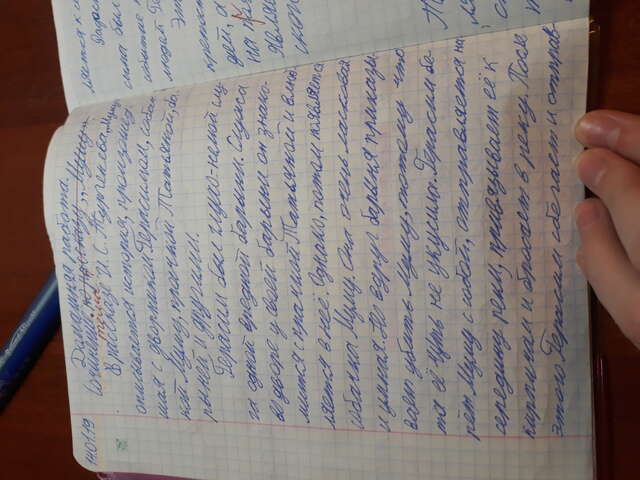 14.01.19
Домашняя работа.
Сочинение по рассказу „Муму"
теме
В рассказе И. С. Тургенева „Муму"
описывается история, произошед-
шая с дворником Герасимом, собач-
кой Муму, прачкой Татьяной, ба-
рыней и другими.
Герасим был глухо-немой слу-
га одной вредной барыни. Служа
во дворе у своей барыни он знако-
мится с прачкой Татьяной и влюб-
ляется в неё. Однако, потом появляется
собачка Муму. Она очень ласковая
и умная. Но вдруг барыня приказы-
вает убить Муму, потому что
та её чуть не укусила. Герасим бе-
рёт Муму с собой, отправляется на
середину реки, привязывает её к
кирпичам и бросает в реку. После
этого Герасим сбегает и отправ-
ляется к с
сила был
людей Ге
Эт
крепост
дей, а
на
явля
ской